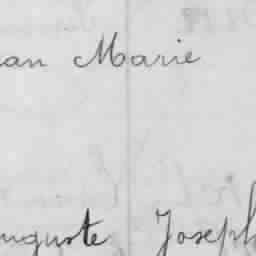 ean Marie
uguste Joseph